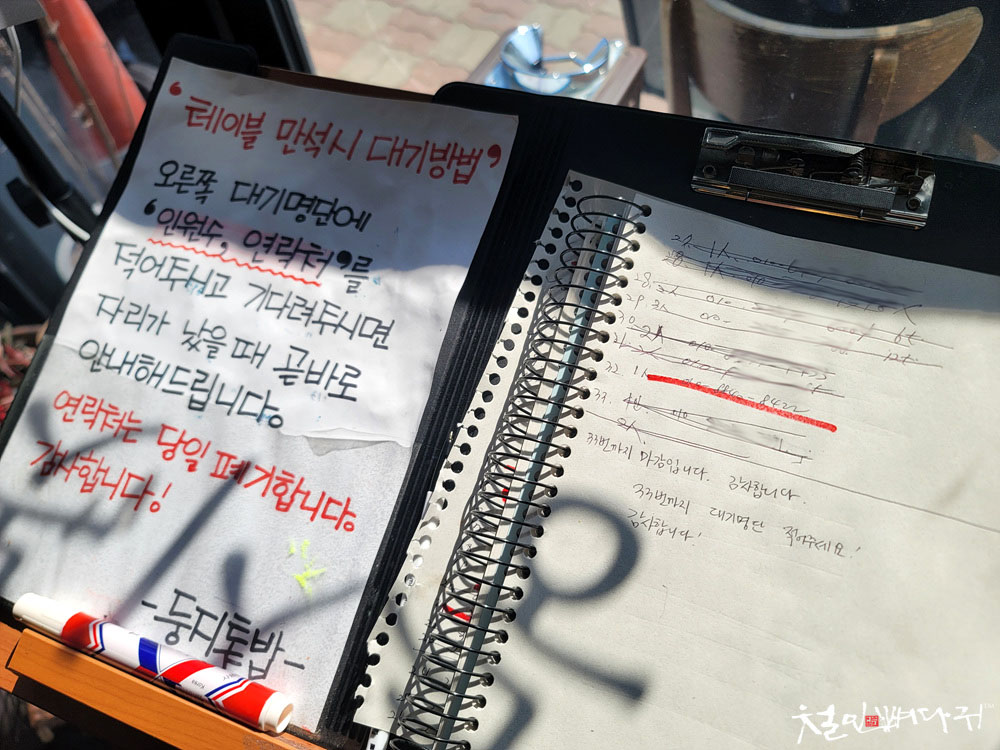 '테이블 만석시 대기방법'
오른쪽 대기명단에
'인원수, 연락처'를
적어두시고 기다려주시면
자리가 났을때 곧바로
안내해드립니다.
연락처는 당일 폐기합니다.
감사합니다!
-둥지톳밥-
27.
28.
28.
29.
30.
31.
32. 8422
33.
33번까지 마감입니다. 감사합니다.
33번까지 대기명단 적어주세요!
감사합니다!
철민뼈다귀™